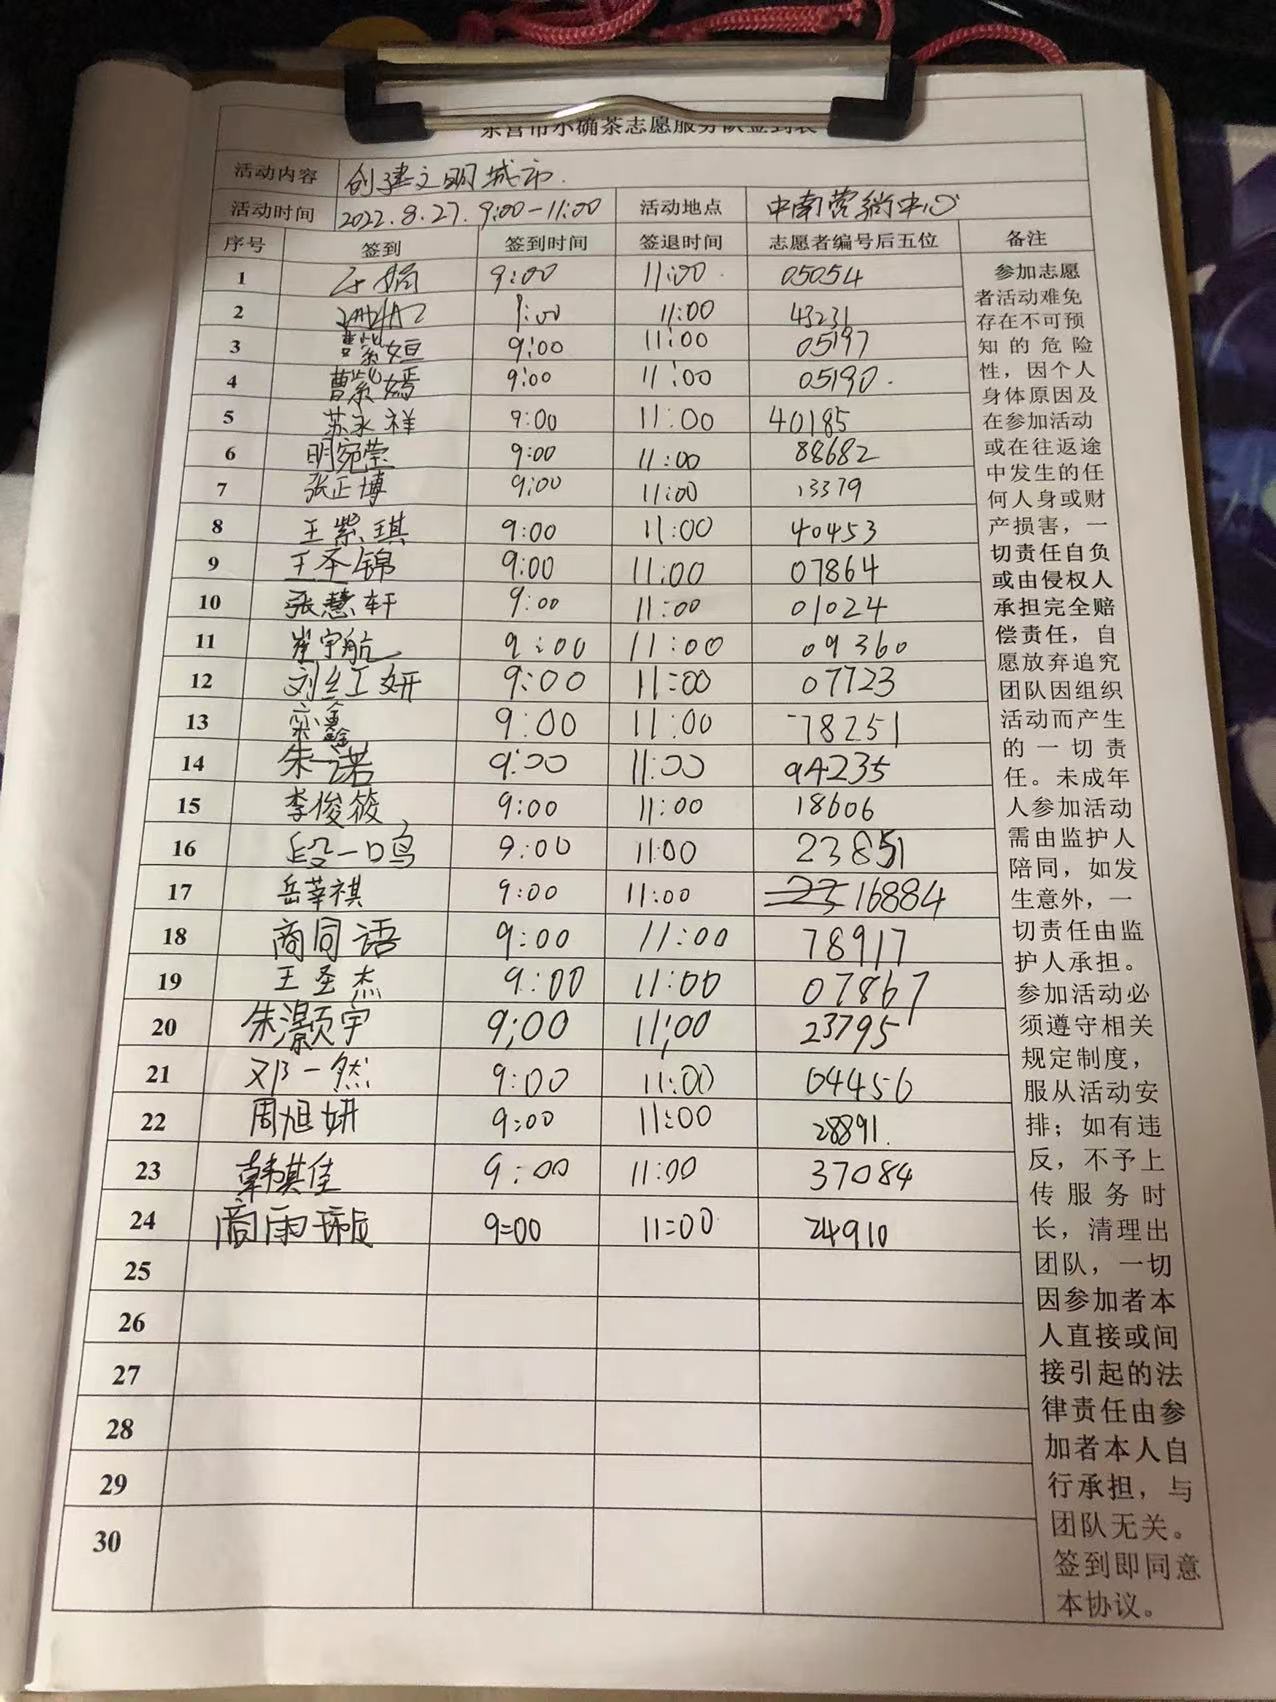 东营市小确茶志愿服务队签到表
活动内容 创建文明城市.
活动时间 2022.8.27. 9:00-11:00 活动地点 中南营销中心
序号 签到 签到时间 签退时间 志愿者编号后五位 备注
1 9:00 11:00 05054
2 9:00 11:00 43231
3 曹紫姮 9:00 11:00 05197
4 曹紫嫣 9:00 11:00 05190.
5 苏永祥 9:00 11:00 40185
6 明宛莹 9:00 11:00 88682
7 张正博 9:00 11:00 13379
8 王紫琪 9:00 11:00 40453
9 王圣锦 9:00 11:00 07864
10 张慧轩 9:00 11:00 01024
11 崔宇航 9:00 11:00 09360
12 刘红妍 9:00 11:00 07723
13 栾鑫 9:00 11:00 78251
14 朱一诺 9:00 11:00 94235
15 李俊筱 9:00 11:00 18606
16 段一鸣 9:00 11:00 23851
17 岳莘祺 9:00 11:00 16884
18 商同语 9:00 11:00 78917
19 王圣杰 9:00 11:00 07867
20 朱灏宇 9:00 11:00 23795
21 邓一然 9:00 11:00 04456
22 周旭妍 9:00 11:00 28891.
23 韩淇佳 9:00 11:00 37084
24 商雨 9:00 11:00 24910
25
26
27
28
29
30
参加志愿
者活动难免
存在不可预
知的危险
性，因个人
身体原因及
在参加活动
或在往返途
中发生的任
何人身或财
产损害，一
切责任自负
或由侵权人
承担完全赔
偿责任，自
愿放弃追究
团队因组织
活动而产生
的一切责
任。未成年
人参加活动
需由监护人
陪同，如发
生意外，一
切责任由监
护人承担。
参加活动必
须遵守相关
规定制度，
服从活动安
排；如有违
反，不予上
传服务时
长，清理出
团队，一切
因参加者本
人直接或间
接引起的法
律责任由参
加者本人自
行承担，与
团队无关。
签到即同意
本协议。